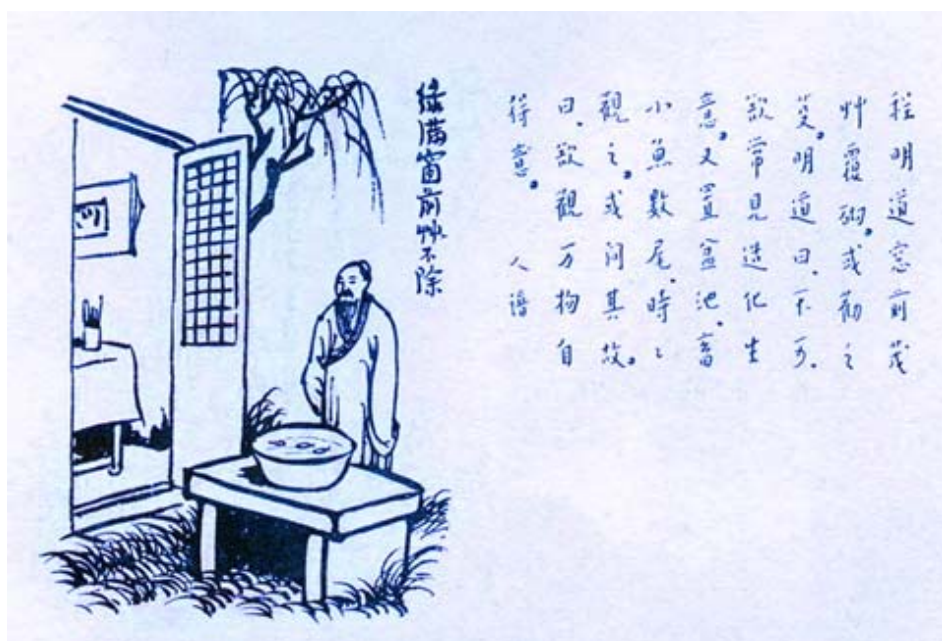 程明道窓前茂
艸覆砌。或勸之
芟。明道曰、不可、
欲常見造化生
意。又置盆池、畜
小魚數尾、時々
觀之。或问其故。
曰、欲觀万物自
得意。 人譜
绿满窗前艸不除